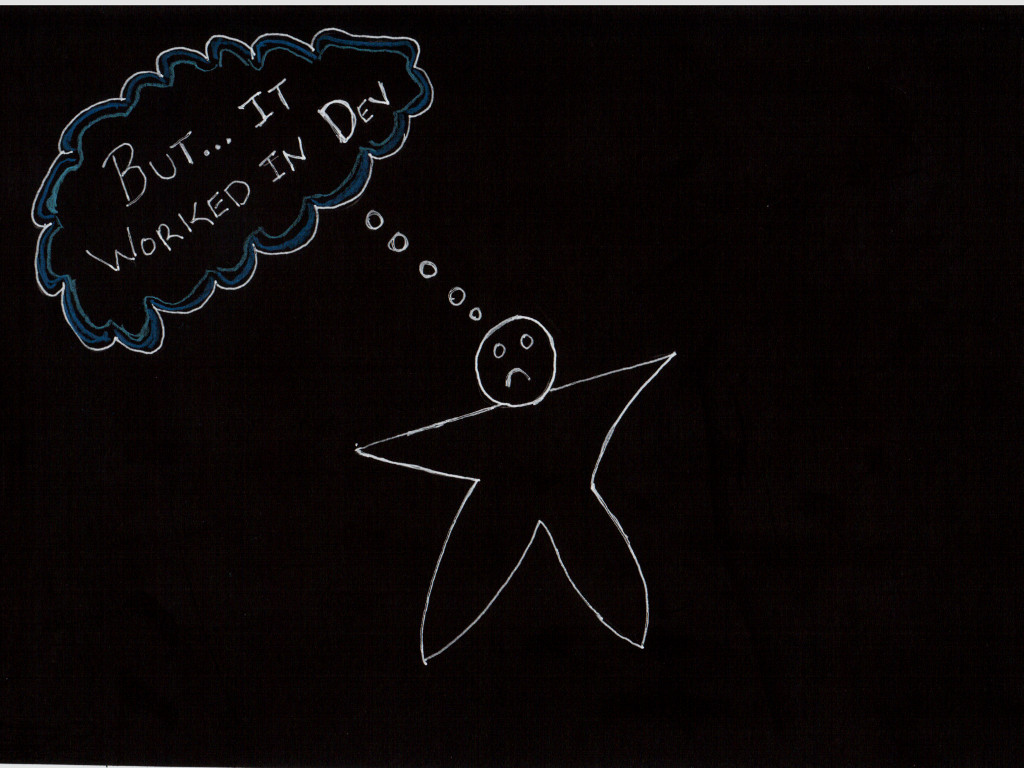 BUT... IT
WORKED IN DEV